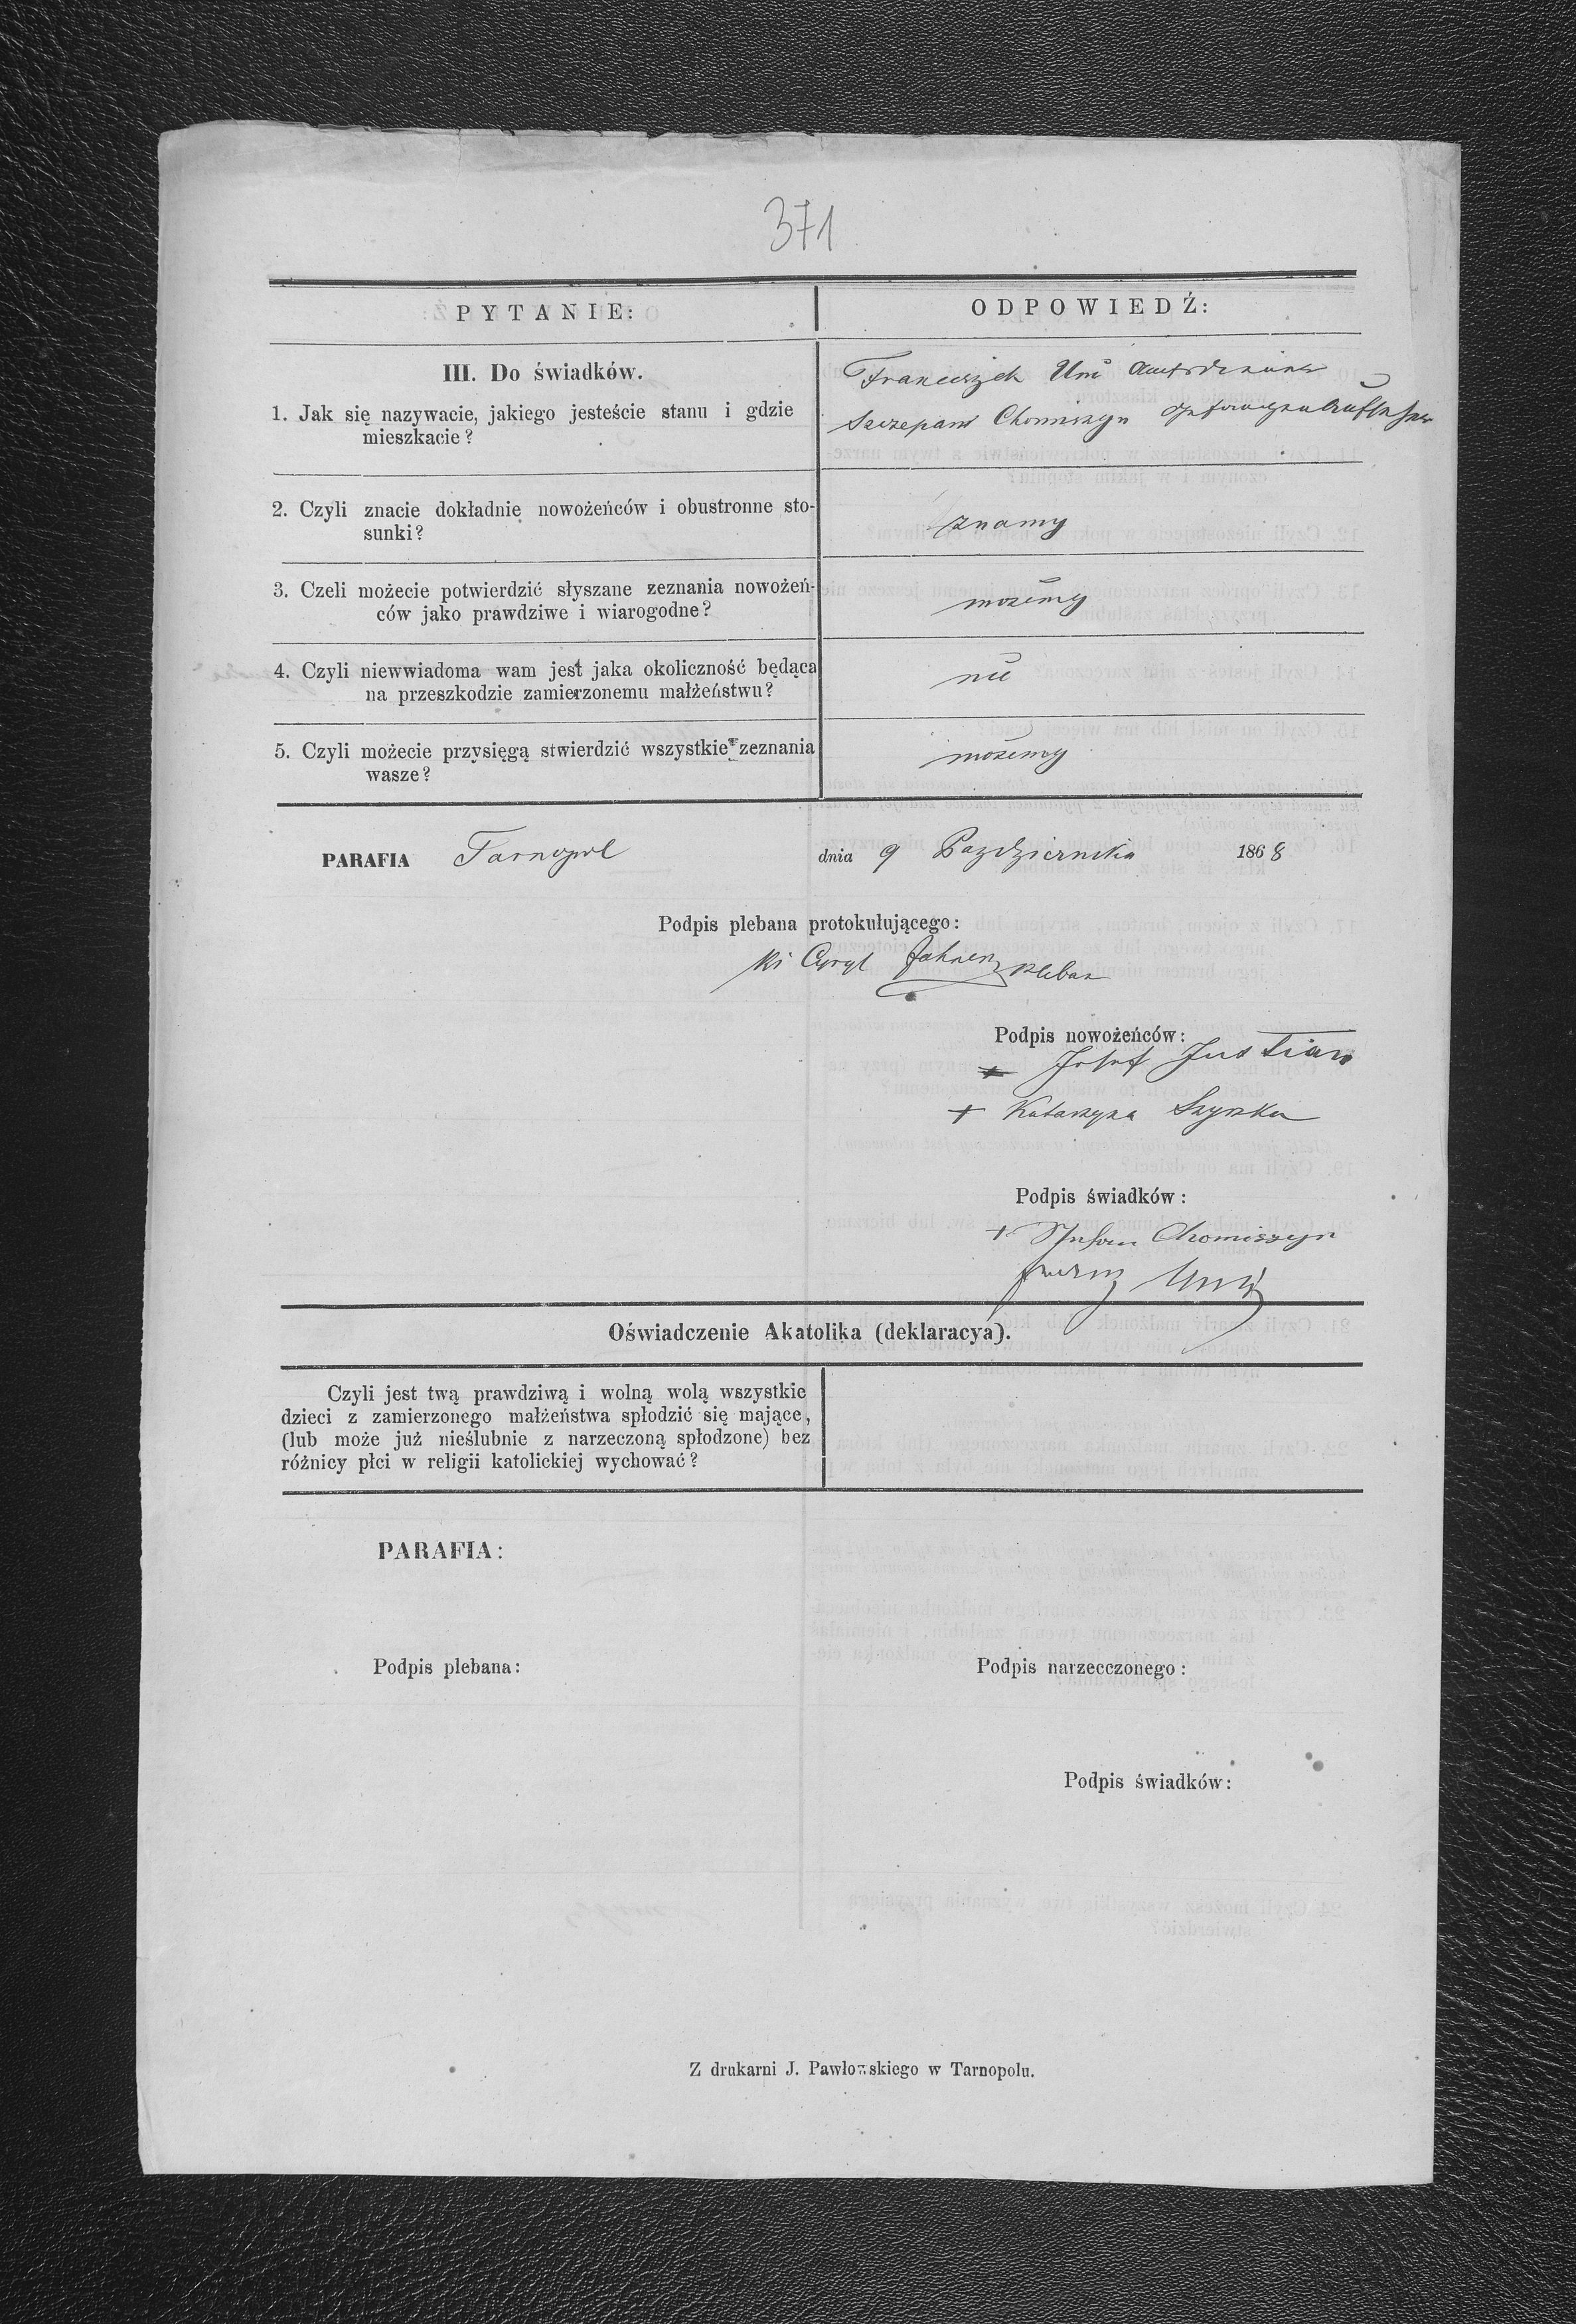 371
PYTANIE:
ODPOWIEDŹ:
III. Do świadków.
1. Jak się nazywacie, jakiego jesteście stanu i gdzie
mieszkacie?
Franciszek
Szczepan Chomiszyn
2. Czyli znacie dokładnie nowożeńców i obustronne sto-
sunki?
znamy
3. Czeli możecie potwierdzić słyszane zeznania nowożeń-
ców jako prawdziwe i wiarogodne?
możemy
4. Czyli niewwiadoma wam jest jaka okoliczność będąca
na przeszkodzie zamierzonemu małżeństwu?
nie
5. Czyli możecie przysięgą stwierdzić wszystkie zeznania
wasze?
możemy
PARAFIA Tarnopol dnia 9 Października 1868
Podpis plebana protokułującego:
Cyryl pleban
Podpis nowożeńców:
+ Josef
+ Katarzyna
Podpis świadków:
+ Chomiszyn
Oświadczenie Akatolika (deklaracya).
Czyli jest twą prawdziwą i wolną wolą wszystkie
dzieci z zamierzonego małżeństwa spłodzić się mające,
(lub może już nieślubnie z narzeczoną spłodzone) bez
różnicy płci w religii katolickiej wychować?
PARAFIA:
Podpis plebana:
Podpis narzecczonego:
Podpis świadków:
Z drukarni J. Pawłowskiego w Tarnopolu.